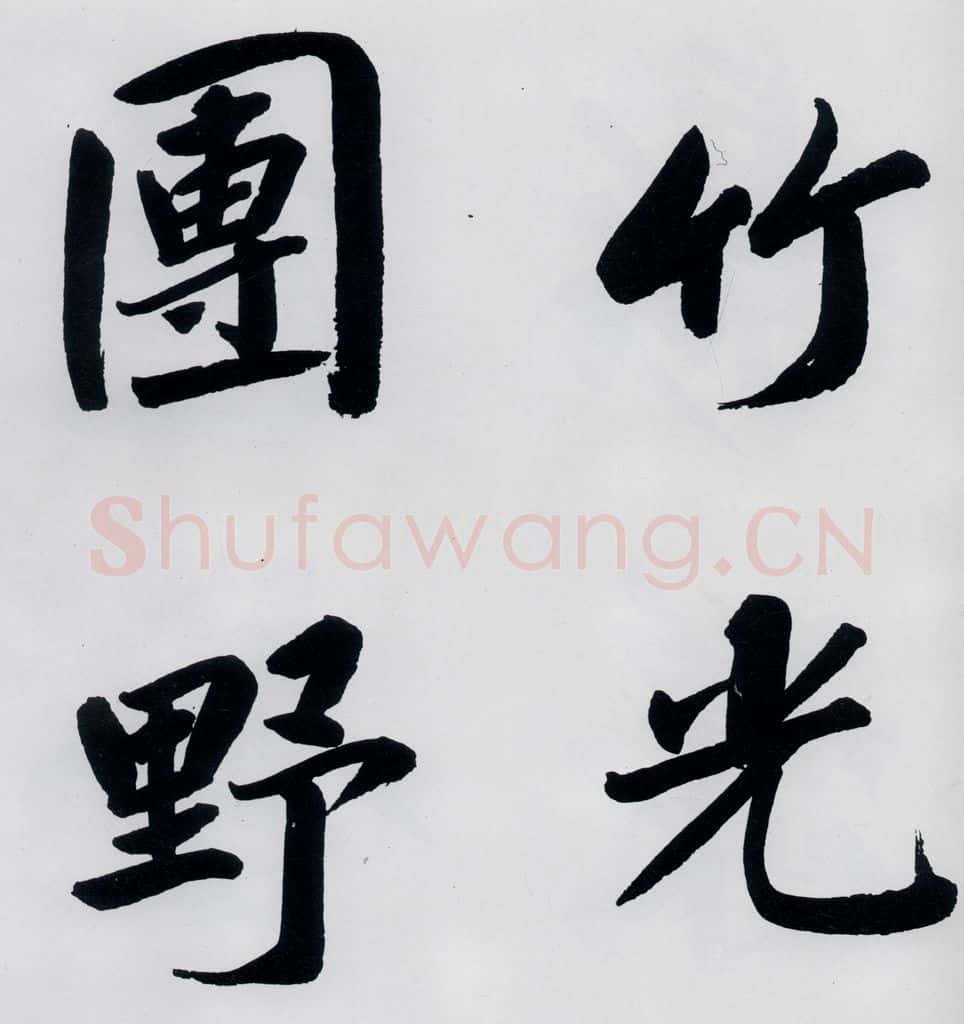 竹光
團野
Shufawang.CN